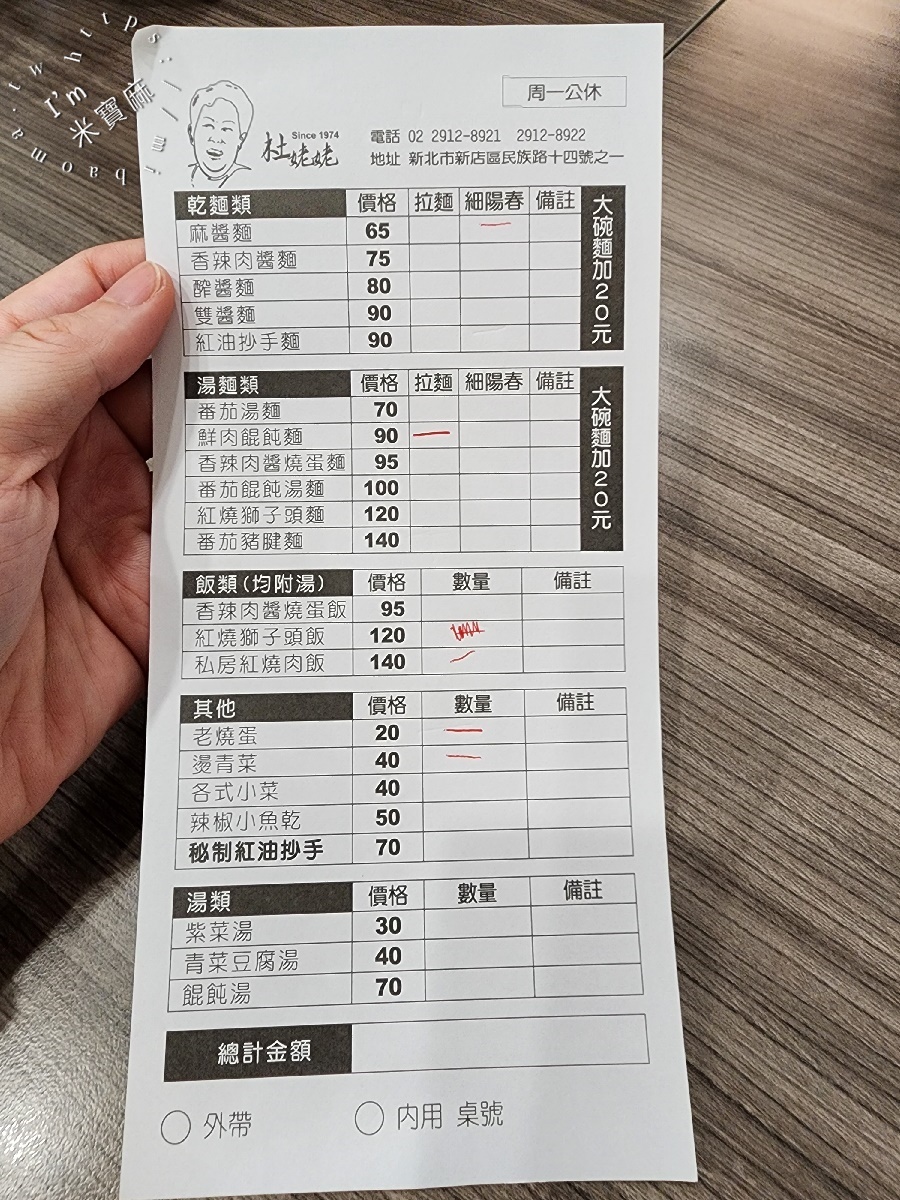 I'm
米寶麻
周一公休
Since 1974
杜姥姥
電話 02 2912-8921 2912-8922
地址 新北市新店區民族路十四號之一
乾麵類 價格 拉麵 細陽春 備註
麻醬麵 65 一
香辣肉醬麵 75
醡醬麵 80
雙醬麵 90
紅油抄手麵 90
大碗麵加20元
湯麵類 價格 拉麵 細陽春 備註
番茄湯麵 70
鮮肉餛飩麵 90 一
香辣肉醬燒蛋麵 95
番茄餛飩湯麵 100
紅燒獅子頭麵 120
番茄豬腱麵 140
大碗麵加20元
飯類(均附湯) 價格 數量 備註
香辣肉醬燒蛋飯 95
紅燒獅子頭飯 120
私房紅燒肉飯 140 一
其他 價格 數量 備註
老燒蛋 20 一
燙青菜 40 一
各式小菜 40
辣椒小魚乾 50
秘制紅油抄手 70
湯類 價格 數量 備註
紫菜湯 30
青菜豆腐湯 40
餛飩湯 70
總計金額
外帶 內用 桌號